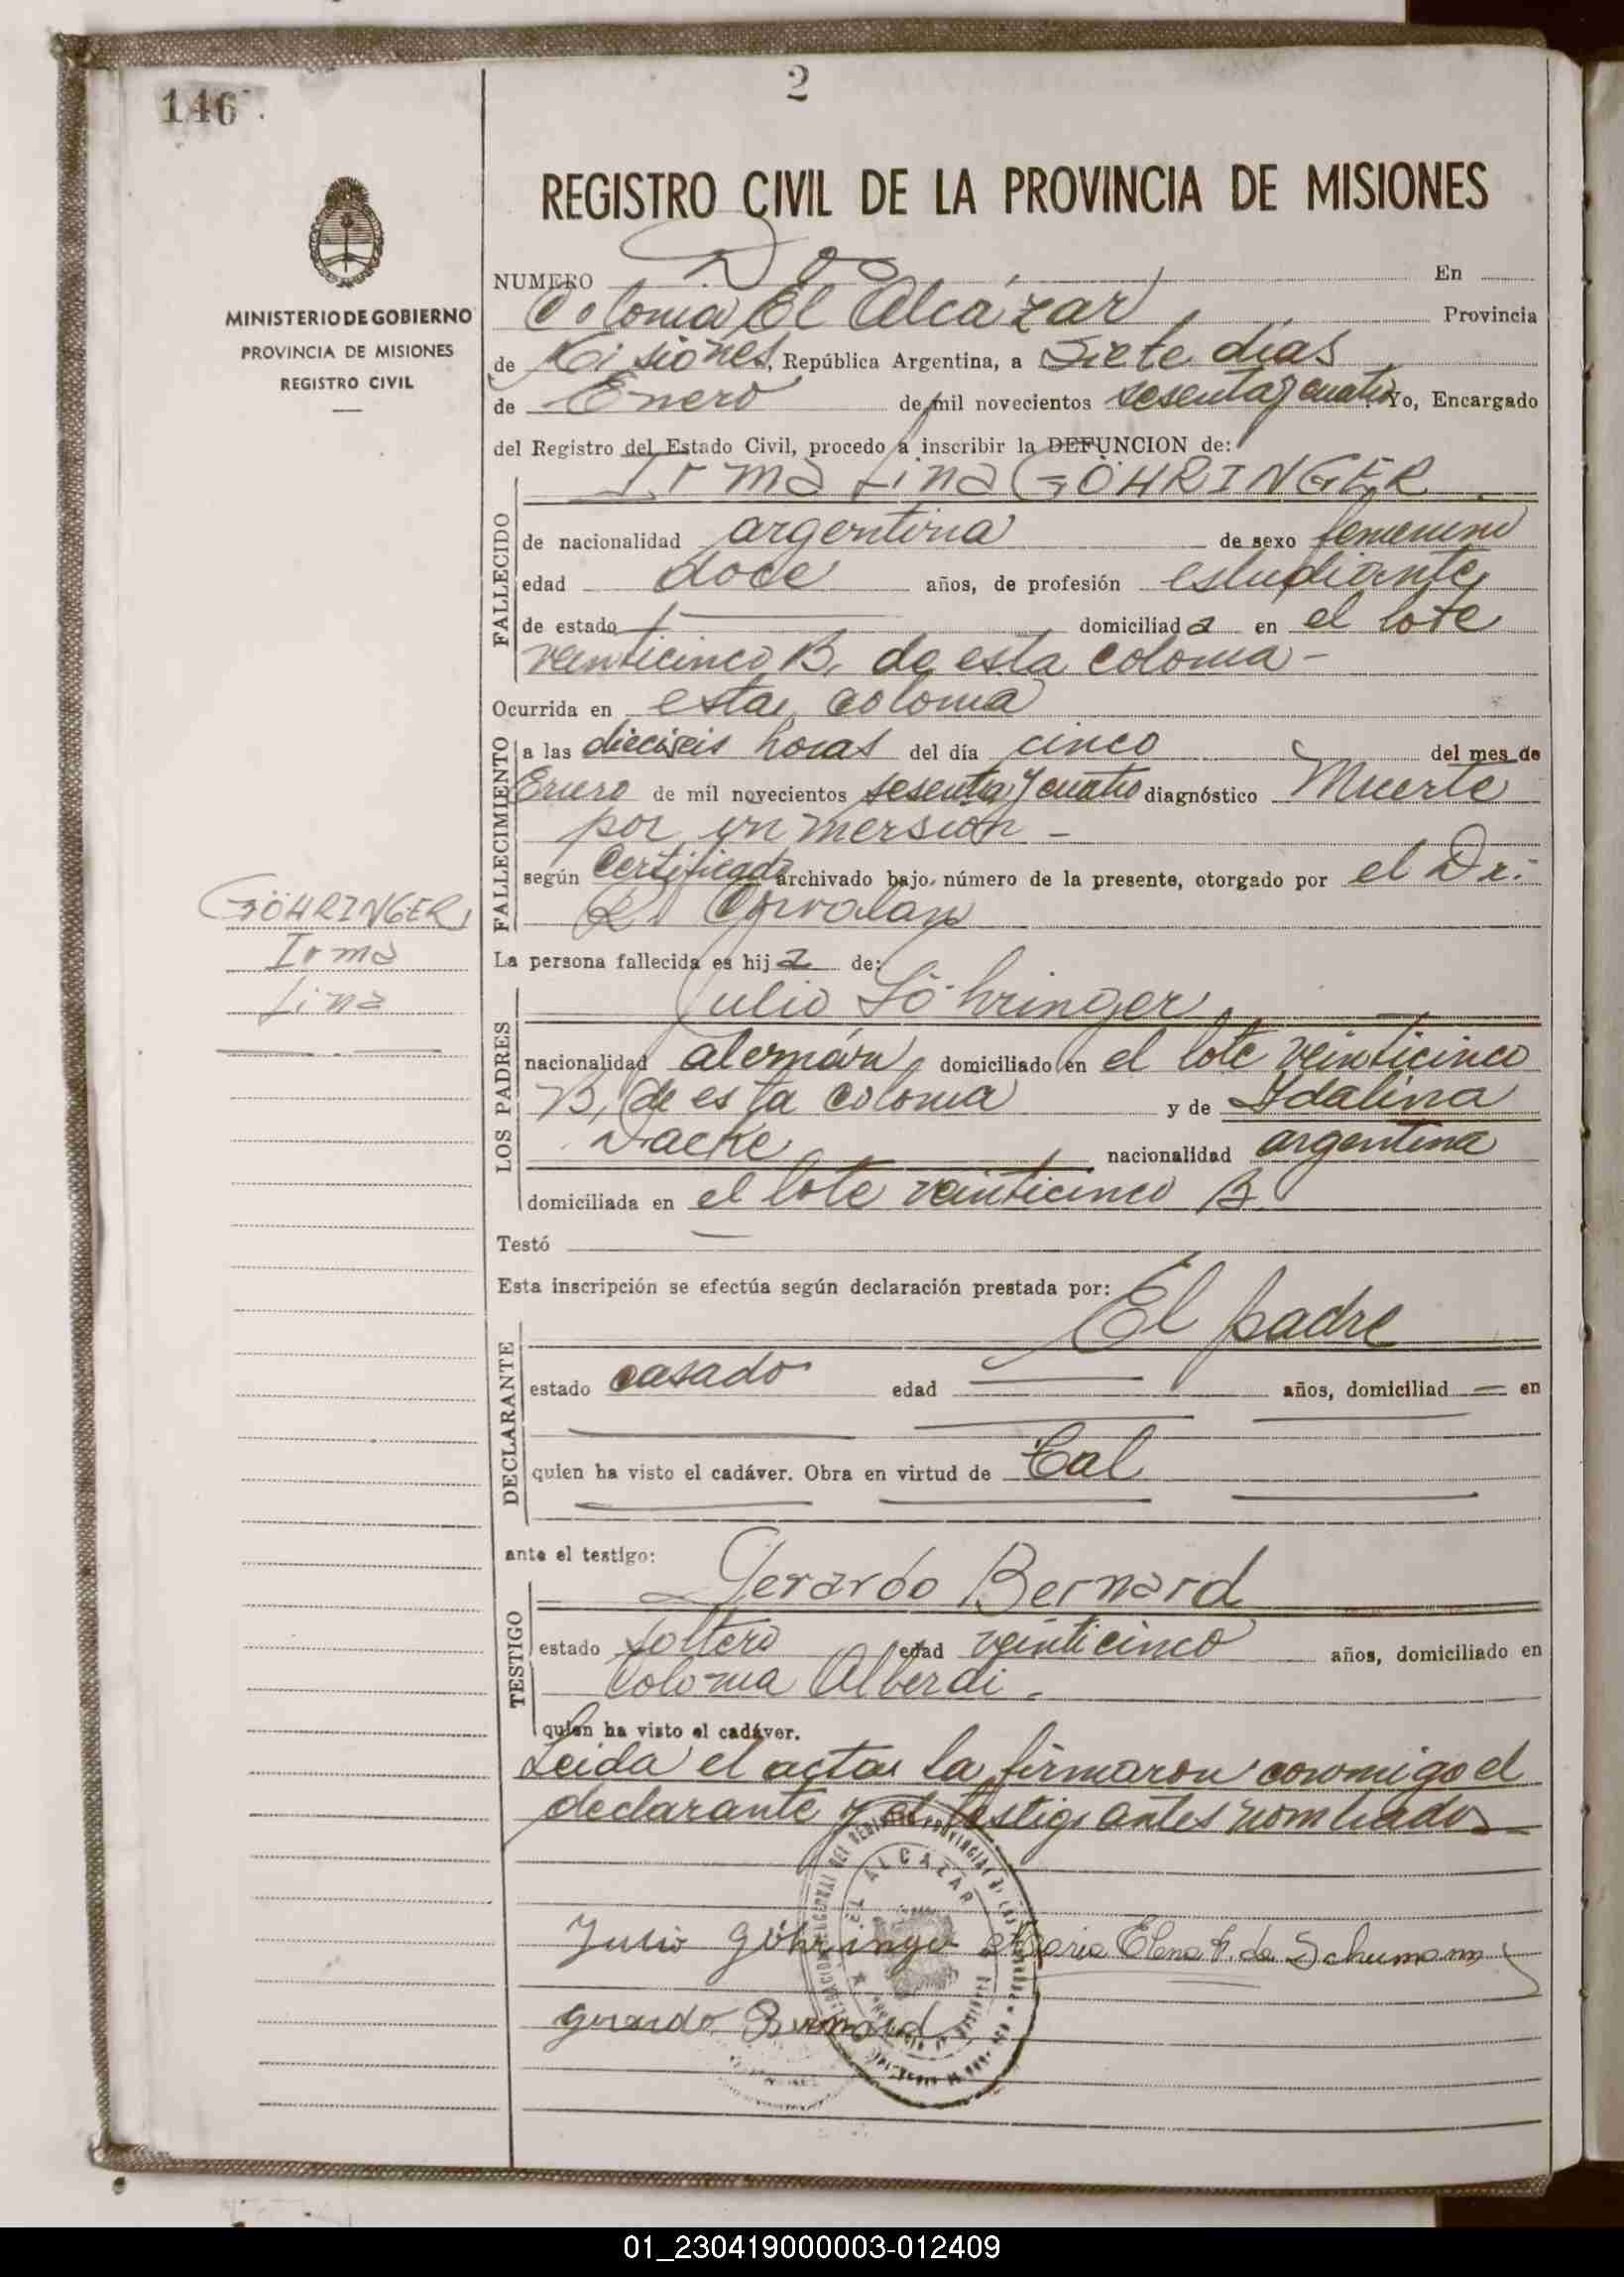 146
2
MINISTERIO DE GOBIERNO
PROVINCIA DE MISIONES
REGISTRO CIVIL
REGISTRO CIVIL DE LA PROVINCIA DE MISIONES
NUMERO Dos En
Colonia El Alcázar Provincia
de Misiones, República Argentina, a Siete días
de Enero de mil novecientos sesenta y cuatro Yo, Encargado
del Registro del Estado Civil, procedo a inscribir la DEFUNCION de:
Irma Lina GÖHRINGER
FALLECIDO
de nacionalidad argentina de sexo femenino
edad doce años, de profesión estudiante
de estado domiciliad a en el lote
veinticinco B, de esta colonia -
Ocurrida en esta colonia
FALLECIMIENTO
a las dieciseis horas del día cinco del mes de
Enero de mil novecientos sesenta y cuatro diagnóstico Muerte
por inmersión -
según Certificado archivado bajo número de la presente, otorgado por el Dr.
Corvalan
GÖHRINGER,
Irma
Lina
La persona fallecida es hij a de:
LOS PADRES
Julio Göhringer
nacionalidad alemán, domiciliado en el lote veinticinco
B, de esta colonia y de Idalina
Dacke nacionalidad argentina
domiciliada en el lote veinticinco B
Testó —
Esta inscripción se efectúa según declaración prestada por:
DECLARANTE
El padre
estado casado edad — años, domiciliad — en
quien ha visto el cadáver. Obra en virtud de Tal
ante el testigo:
TESTIGO
Gerardo Bernard
estado soltero edad veinticinco años, domiciliado en
Colonia Alberdi.
quien ha visto el cadáver.
Leida el acta la firmaron conmigo el
declarante y el testigo antes nombrado
EL ALCAZAR
Julio Göhringer Maria Elena F. de Schumann
Gerardo Bernard
01_230419000003-012409